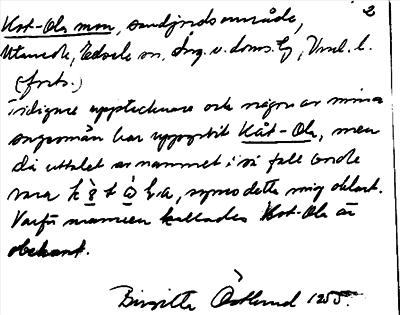 Kot-Ola mon, sandjordsområde, 2
Utanede, Edsele sn, Ång. v. doms. tg, Vnl. l.
(forts.)
Tidigare upptecknare och några av mina
sagesmän har uppgivit Kåt-Ola, men
då uttalet av namnet i så fall borde
vara k t a, synes detta mig oklart.
Varför mannen kallades Kot-Ola är
obekant.
Birgitta Östlund 1955.